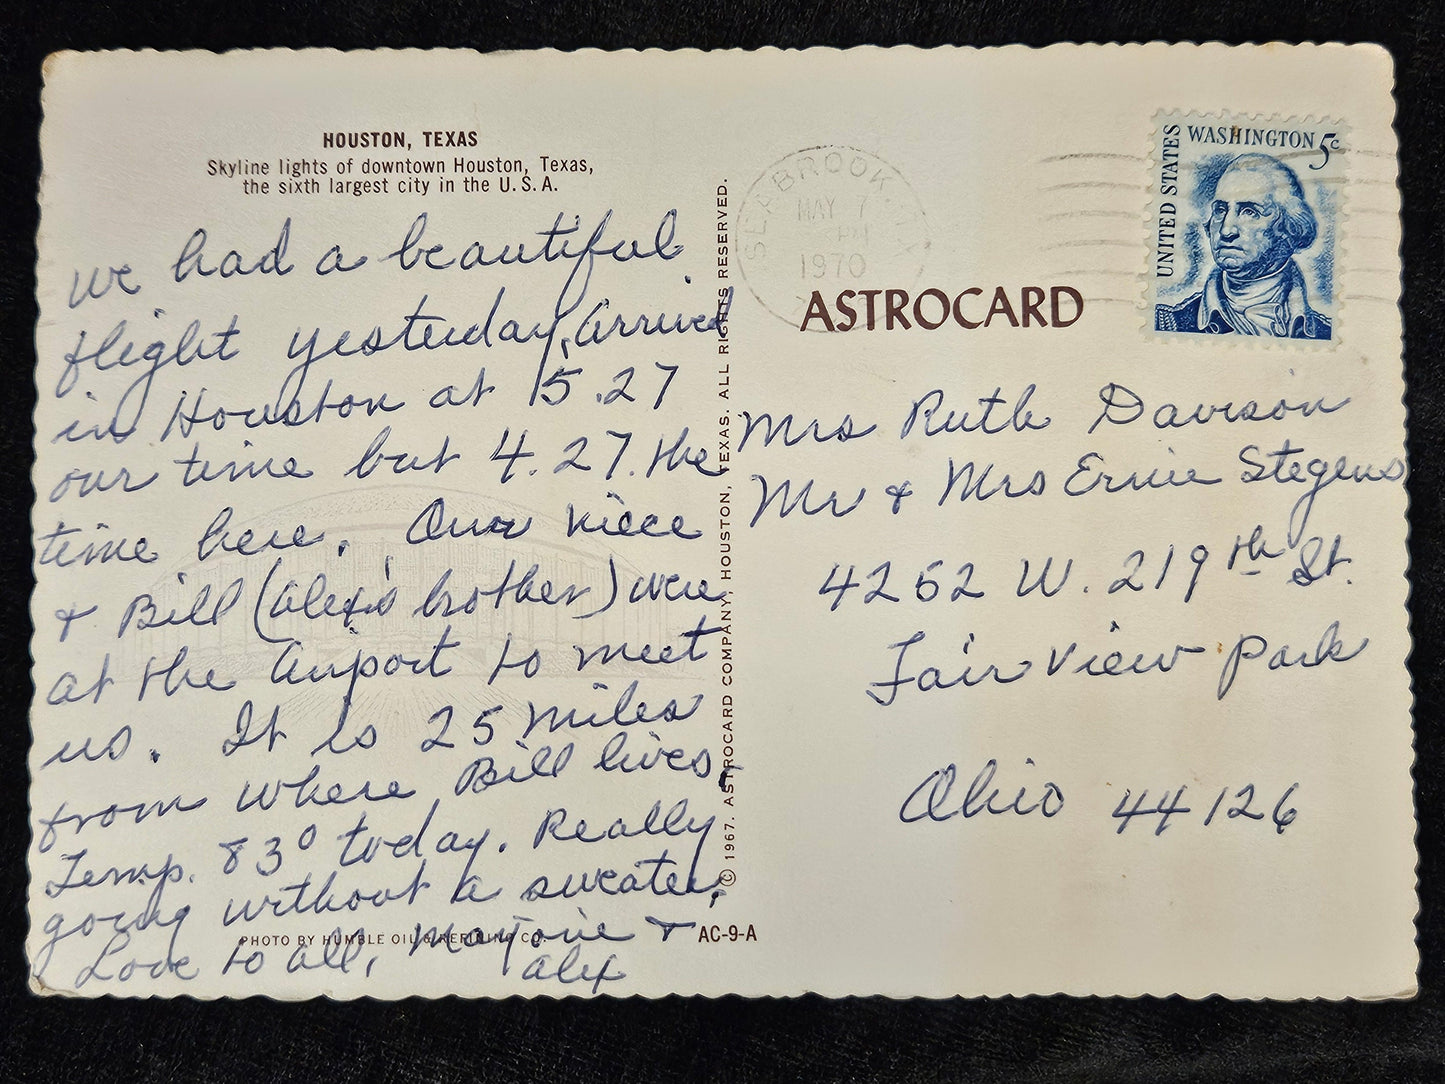 HOUSTON, TEXAS
Skyline lights of downtown Houston, Texas,
the sixth largest city in the U.S.A.
we had a beautiful
flight yesterday. Arrived
in Houston at 5.27
our time but 4.27. the
time here. Our niece
& Bill (Alex's brother) were
at the Airport to meet
us. It is 25 miles
from where Bill lives.
Temp. 83° today. Really
going without a sweater.
Love to all, Marjorie &
Alex
PHOTO BY HUMBLE OIL & REFINING CO.
AC-9-A
© 1967. ASTROCARD COMPANY, HOUSTON, TEXAS. ALL RIGHTS RESERVED.
SEABROOK
MAY 7
PM
1970
ASTROCARD
UNITED STATES
WASHINGTON 5c
Mrs Ruth Davison
Mr & Mrs Ernie Stegens
4252 W. 219th St.
Fair View Park
Ohio 44126